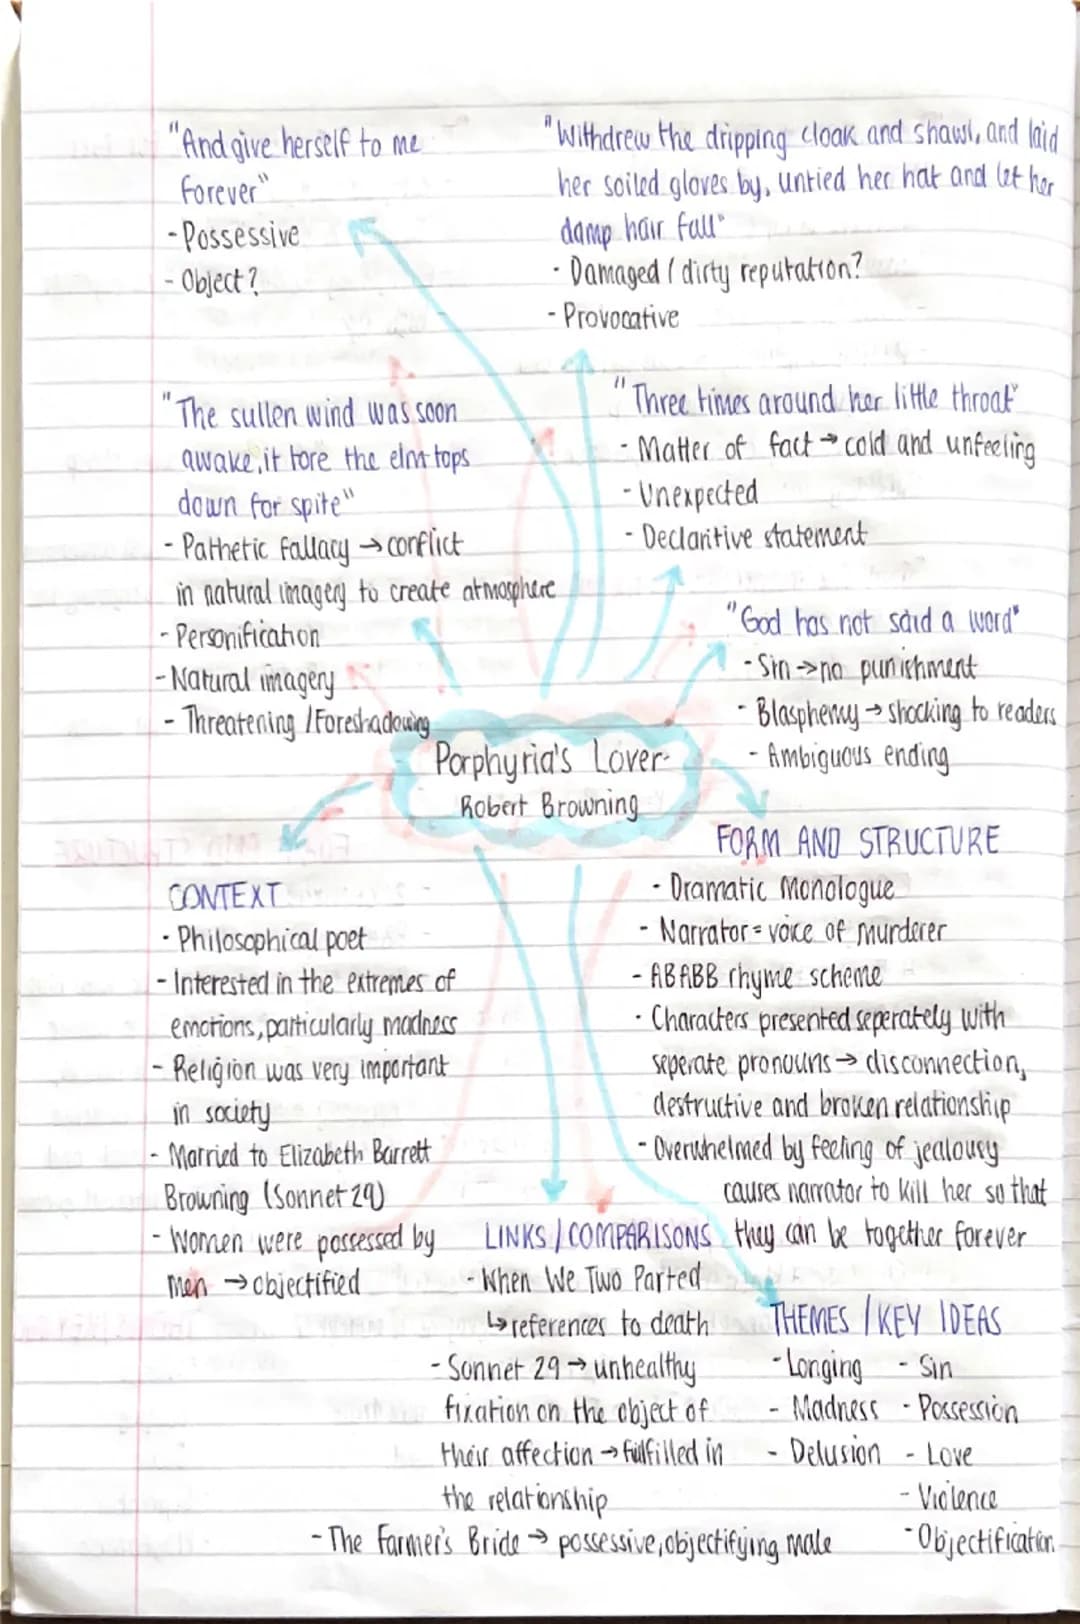 "And give herself to me
forever"
- Possessive
- Object?
"Withdrew the dripping cloak and shawl, and laid
her soiled gloves by, untied her hat and let her
damp hair fall"
- Damaged / dirty reputation?
- Provocative
"The sullen wind was soon
awake, it tore the elm tops
down for spite"
- Pathetic fallacy → conflict
in natural imagery to create atmosphere
- Personification
- Natural imagery
- Threatening / Foreshadowing
"Three times around her little throat"
- Matter of fact → cold and unfeeling
- Unexpected
- Declaritive statement
"God has not said a word"
- Sin → no punishment
- Blasphemy → shocking to readers
- Ambiguous ending
Porphyria's Lover-
Robert Browning
CONTEXT
- Philosophical poet
- Interested in the extremes of
emotions, particularly madness
- Religion was very important
in society
- Married to Elizabeth Barrett
Browning (Sonnet 29)
- Women were possessed by
men → objectified
FORM AND STRUCTURE
- Dramatic Monologue
- Narrator = voice of murderer
- ABABB rhyme scheme
- Characters presented seperately with
seperate pronouns → disconnection,
destructive and broken relationship
- Overwhelmed by feeling of jealousy
causes narrator to kill her so that
they can be together forever
LINKS / COMPARISONS
- When We Two Parted
↳ references to death
- Sonnet 29 → unhealthy
fixation on the object of
their affection → fulfilled in
the relationship
- The Farmer's Bride → possessive, objectifying male
THEMES / KEY IDEAS
- Longing - Sin
- Madness - Possession
- Delusion - Love
- Violence
- Objectification